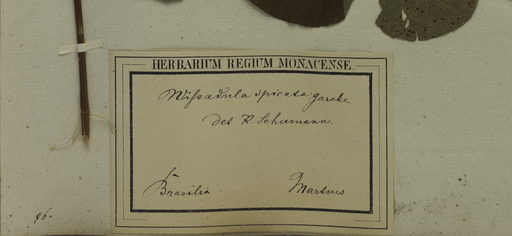 HERBARIUM REGIUM MONACENSE.
Wißadula spicata Garcke
det K. Schumann.
Brasilia. Martius
96.